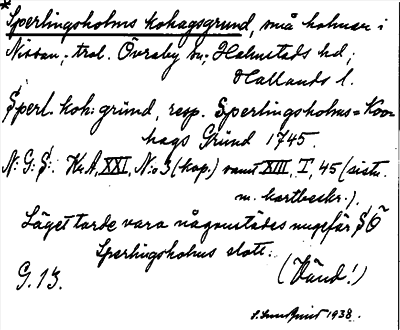 * Sperlingsholms kohagsgrund, små holmar i
Nissan, trol. Övraby sn, Halmstads hd,
Hallands l.
Sperl. koh: grund, resp. Sperlingsholms-Koo-
hags Grund 1745.
N: G: S: KrA, XXI, N:o 3 (kop.) samt XIII, I, 45 (sistn.
m. kartbeskr.).
Läget torde vara någonstädes ungefär SÖ
Sperlingsholms slott.
G. 13. (Vänd!)
1938.